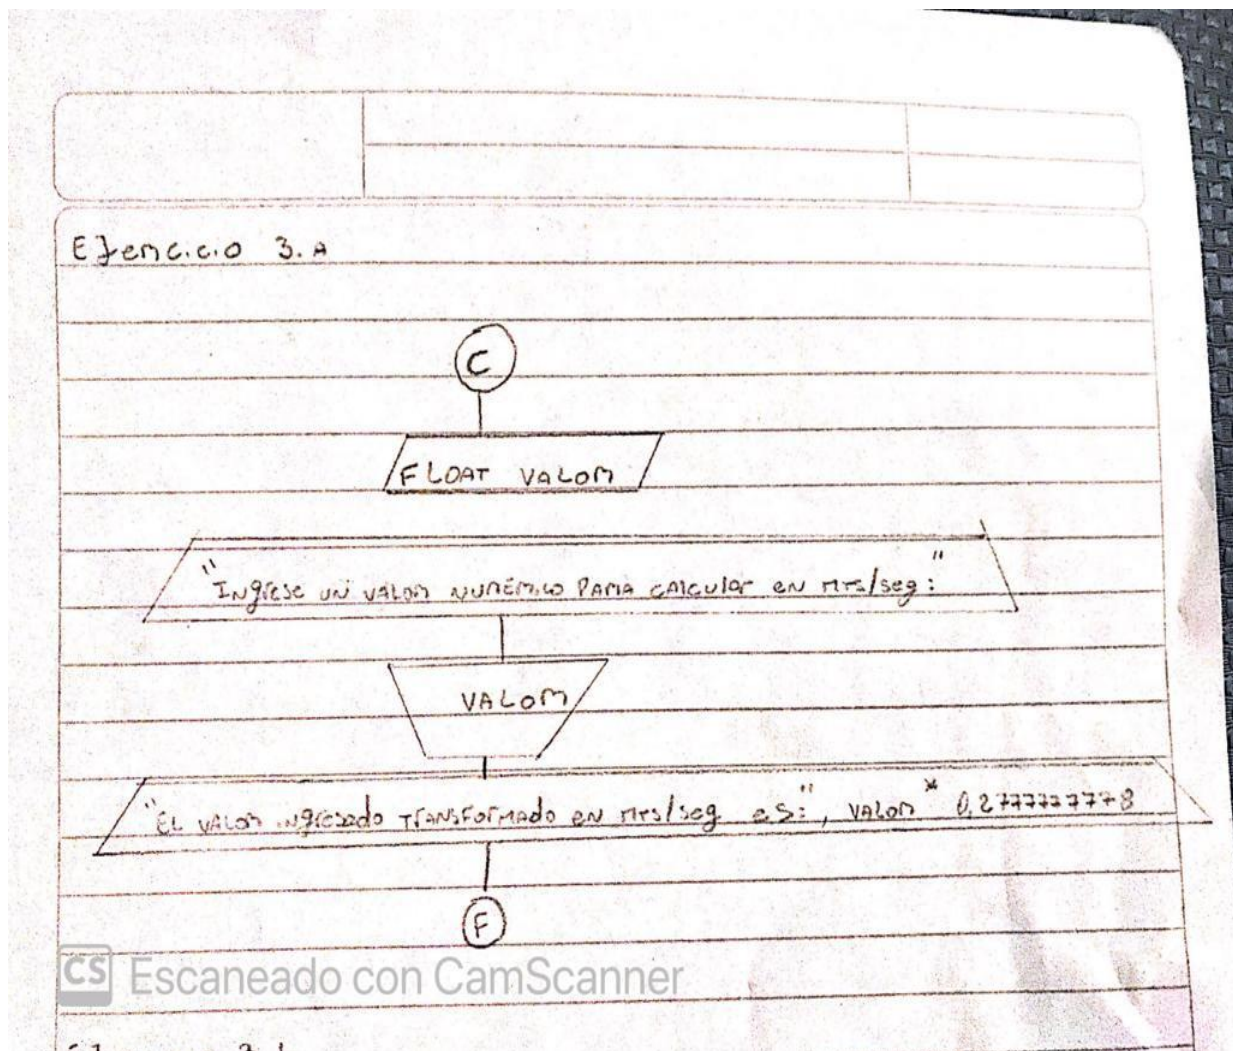 Ejercicio 3.A
C
FLOAT VALOR
"Ingrese un valor numérico para calcular en mts/seg:"
VALOR
"El valor ingresado transformado en mts/seg es:", valor * 0,2777777778
F
CS Escaneado con CamScanner